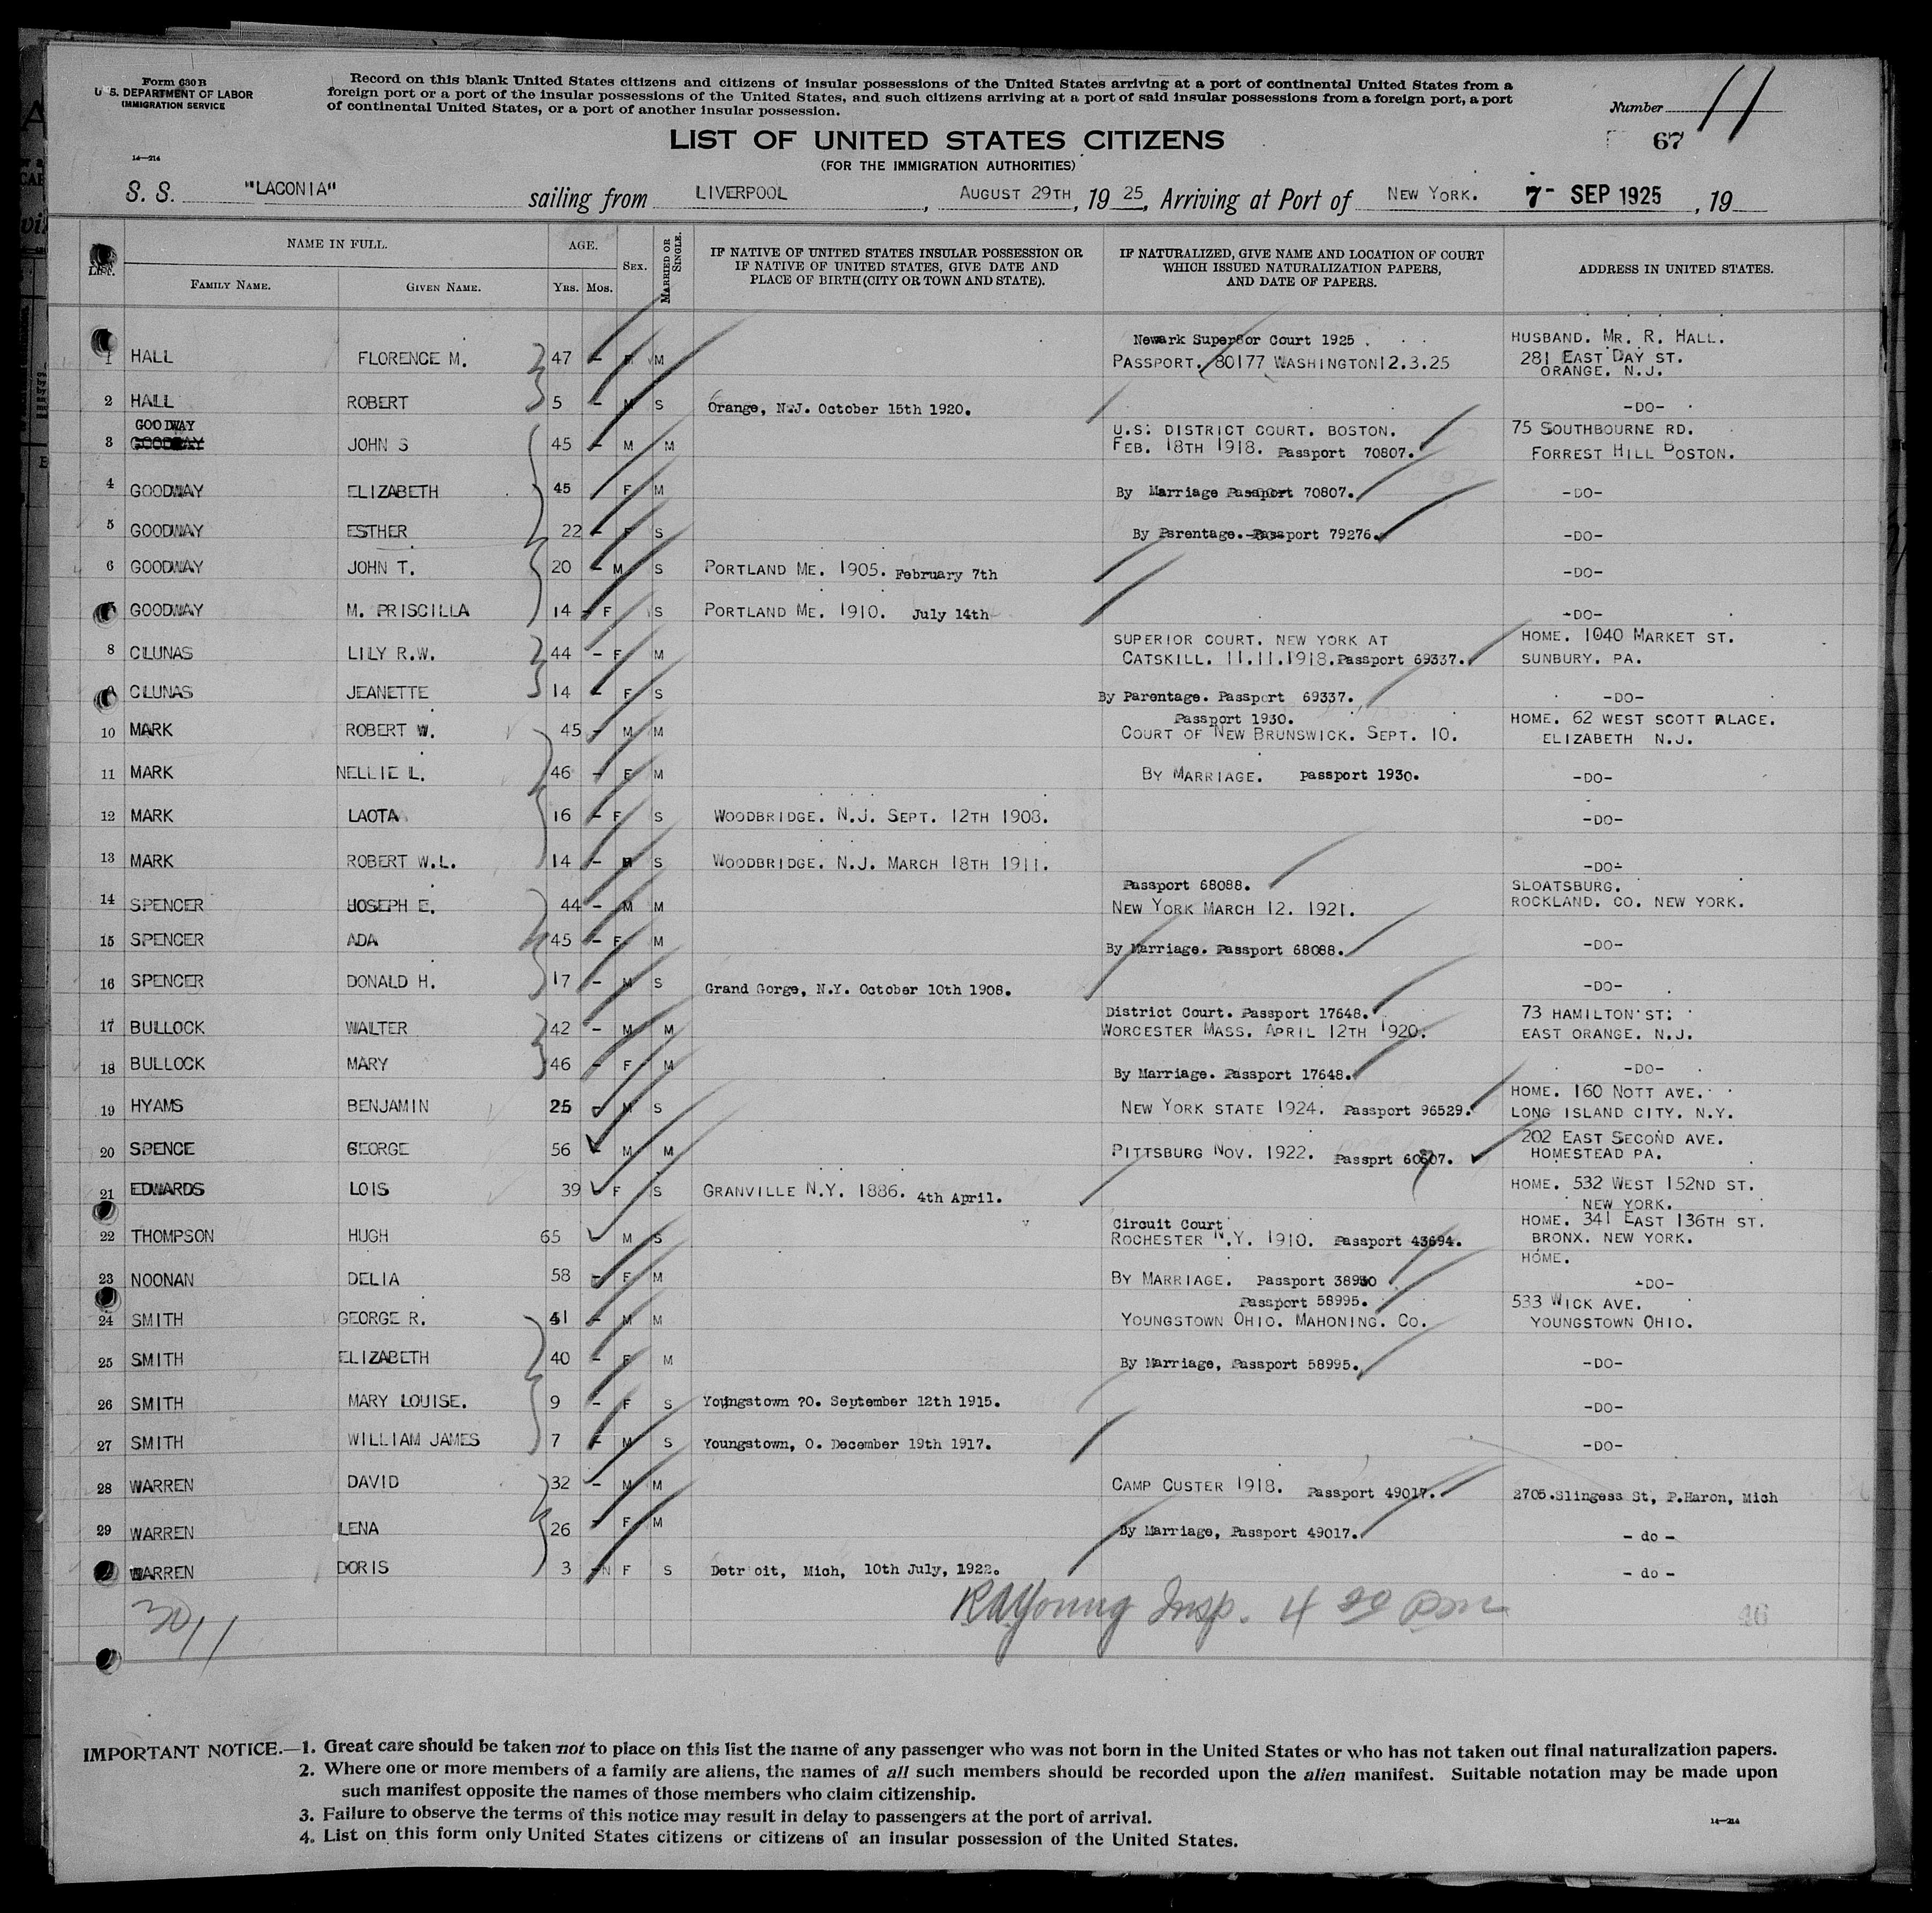 Form 630 B
U. S. DEPARTMENT OF LABOR
IMMIGRATION SERVICE
Record on this blank United States citizens and citizens of insular possessions of the United States arriving at a port of continental United States from a
foreign port or a port of the insular possessions of the United States, and such citizens arriving at a port of said insular possessions from a foreign port, a port
of continental United States, or a port of another insular possession.
Number 11
67
LIST OF UNITED STATES CITIZENS
(FOR THE IMMIGRATION AUTHORITIES)
14—214
S. S. "LACONIA" sailing from LIVERPOOL, AUGUST 29TH, 1925, Arriving at Port of NEW YORK. 7- SEP 1925, 19
LIST. NAME IN FULL. AGE. SEX. MARRIED OR SINGLE. IF NATIVE OF UNITED STATES INSULAR POSSESSION OR IF NATIVE OF UNITED STATES, GIVE DATE AND PLACE OF BIRTH (CITY OR TOWN AND STATE). IF NATURALIZED, GIVE NAME AND LOCATION OF COURT WHICH ISSUED NATURALIZATION PAPERS, AND DATE OF PAPERS. ADDRESS IN UNITED STATES.
FAMILY NAME. GIVEN NAME. YRS. MOS.
Newark Superior Court 1925. HUSBAND. MR. R. HALL.
1 HALL FLORENCE M. 47 - F M PASSPORT. 80177 WASHINGTON 12.3.25 281 EAST DAY ST.
ORANGE. N.J.
2 HALL ROBERT 5 - M S Orange, N.J. October 15th 1920. -DO-
GOODWAY U.S. DISTRICT COURT. BOSTON. 75 SOUTHBOURNE RD.
3 GOODWAY JOHN S 45 - M M FEB. 18TH 1918. Passport 70807. FORREST HILL BOSTON.
4 GOODWAY ELIZABETH 45 F M By Marriage Passport 70807. -DO-
5 GOODWAY ESTHER 22 - F S By Parentage. Passport 79276. -DO-
6 GOODWAY JOHN T. 20 - M S PORTLAND ME. 1905. February 7th -DO-
GOODWAY M. PRISCILLA 14 - F S PORTLAND ME. 1910. July 14th -DO-
SUPERIOR COURT. NEW YORK AT HOME. 1040 MARKET ST.
8 CLUNAS LILY R.W. 44 - F M CATSKILL. 11.11.1918. Passport 69337. SUNBURY. PA.
CLUNAS JEANETTE 14 - F S By Parentage. Passport 69337. -DO-
Passport 1930. HOME. 62 WEST SCOTT PLACE.
10 MARK ROBERT W. 45 - M M COURT OF NEW BRUNSWICK. SEPT. 10. ELIZABETH N.J.
11 MARK NELLIE L. 46 - F M BY MARRIAGE. Passport 1930. -DO-
12 MARK LAOTA 16 - F S WOODBRIDGE. N.J. SEPT. 12TH 1908. -DO-
13 MARK ROBERT W.L. 14 - M S WOODBRIDGE. N.J. MARCH 18TH 1911. -DO-
Passport 68088. SLOATSBURG.
14 SPENCER JOSEPH E. 44 - M M NEW YORK MARCH 12. 1921. ROCKLAND. CO. NEW YORK.
15 SPENCER ADA 45 - F M By Marriage. Passport 68088. -DO-
16 SPENCER DONALD H. 17 - M S Grand Gorge, N.Y. October 10th 1908. -DO-
District Court. Passport 17648. 73 HAMILTON ST:
17 BULLOCK WALTER 42 - M M WORCESTER MASS. APRIL 12TH 1920. EAST ORANGE. N.J.
18 BULLOCK MARY 46 - F M By Marriage. Passport 17648. -DO-
HOME. 160 NOTT AVE.
19 HYAMS BENJAMIN 25 M S NEW YORK STATE 1924. Passport 96529. LONG ISLAND CITY. N.Y.
202 EAST SECOND AVE.
20 SPENCE GEORGE 56 - M M PITTSBURG NOV. 1922. Passprt 60607. HOMESTEAD PA.
21 EDWARDS LOIS 39 F S GRANVILLE N.Y. 1886. 4th April. HOME. 532 WEST 152ND ST.
NEW YORK.
Circuit Court HOME. 341 EAST 136TH ST.
22 THOMPSON HUGH 65 M S ROCHESTER N.Y. 1910. Passport 43694. BRONX. NEW YORK.
HOME.
23 NOONAN DELIA 58 - F M BY MARRIAGE. Passport 38930 -DO-
Passport 58995. 533 WICK AVE.
24 SMITH GEORGE R. 41 - M M YOUNGSTOWN OHIO. MAHONING. CO. YOUNGSTOWN OHIO.
25 SMITH ELIZABETH 40 - F M By Marriage, Passport 58995. -DO-
26 SMITH MARY LOUISE. 9 - F S Youngstown ?O. September 12th 1915. -DO-
27 SMITH WILLIAM JAMES 7 - M S Youngstown, O. December 19th 1917. -DO-
28 WARREN DAVID 32 - M M CAMP CUSTER 1918. Passport 49017. 2705.Slingess St, P.Haron, Mich
29 WARREN LENA 26 - F M By Marriage, Passport 49017. - do -
WARREN DORIS 3 - F S Detroit, Mich, 10th July, 1922. - do -
30/1 RA Young Insp. 4 20 pm 46
IMPORTANT NOTICE.—1. Great care should be taken not to place on this list the name of any passenger who was not born in the United States or who has not taken out final naturalization papers.
2. Where one or more members of a family are aliens, the names of all such members should be recorded upon the alien manifest. Suitable notation may be made upon
such manifest opposite the names of those members who claim citizenship.
3. Failure to observe the terms of this notice may result in delay to passengers at the port of arrival.
4. List on this form only United States citizens or citizens of an insular possession of the United States.
14—214